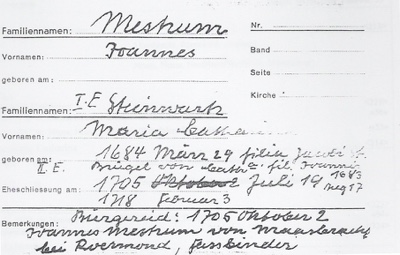 Familiennamen: Mestrum
Nr.
Vornamen: Joannes
Band
geboren am:
Seite
Familiennamen: I. E Steinwark
Kirche
Vornamen: Maria
geboren am: 1684 März 29 filia Jacobi
II. E. Brügel von Cath fil. Joannis
1683
Aug 17
Eheschliessung am: 1705 Juli 19
1718 Februar 3
Bemerkungen: Bürgereid: 1705 Oktober 2
Joannes Mestrum von Maasbracht
bei Roermond, Fassbinder